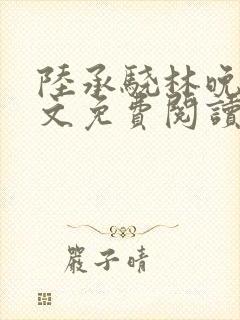 陸承驍林晚
文免費閱讀
嚴子晴